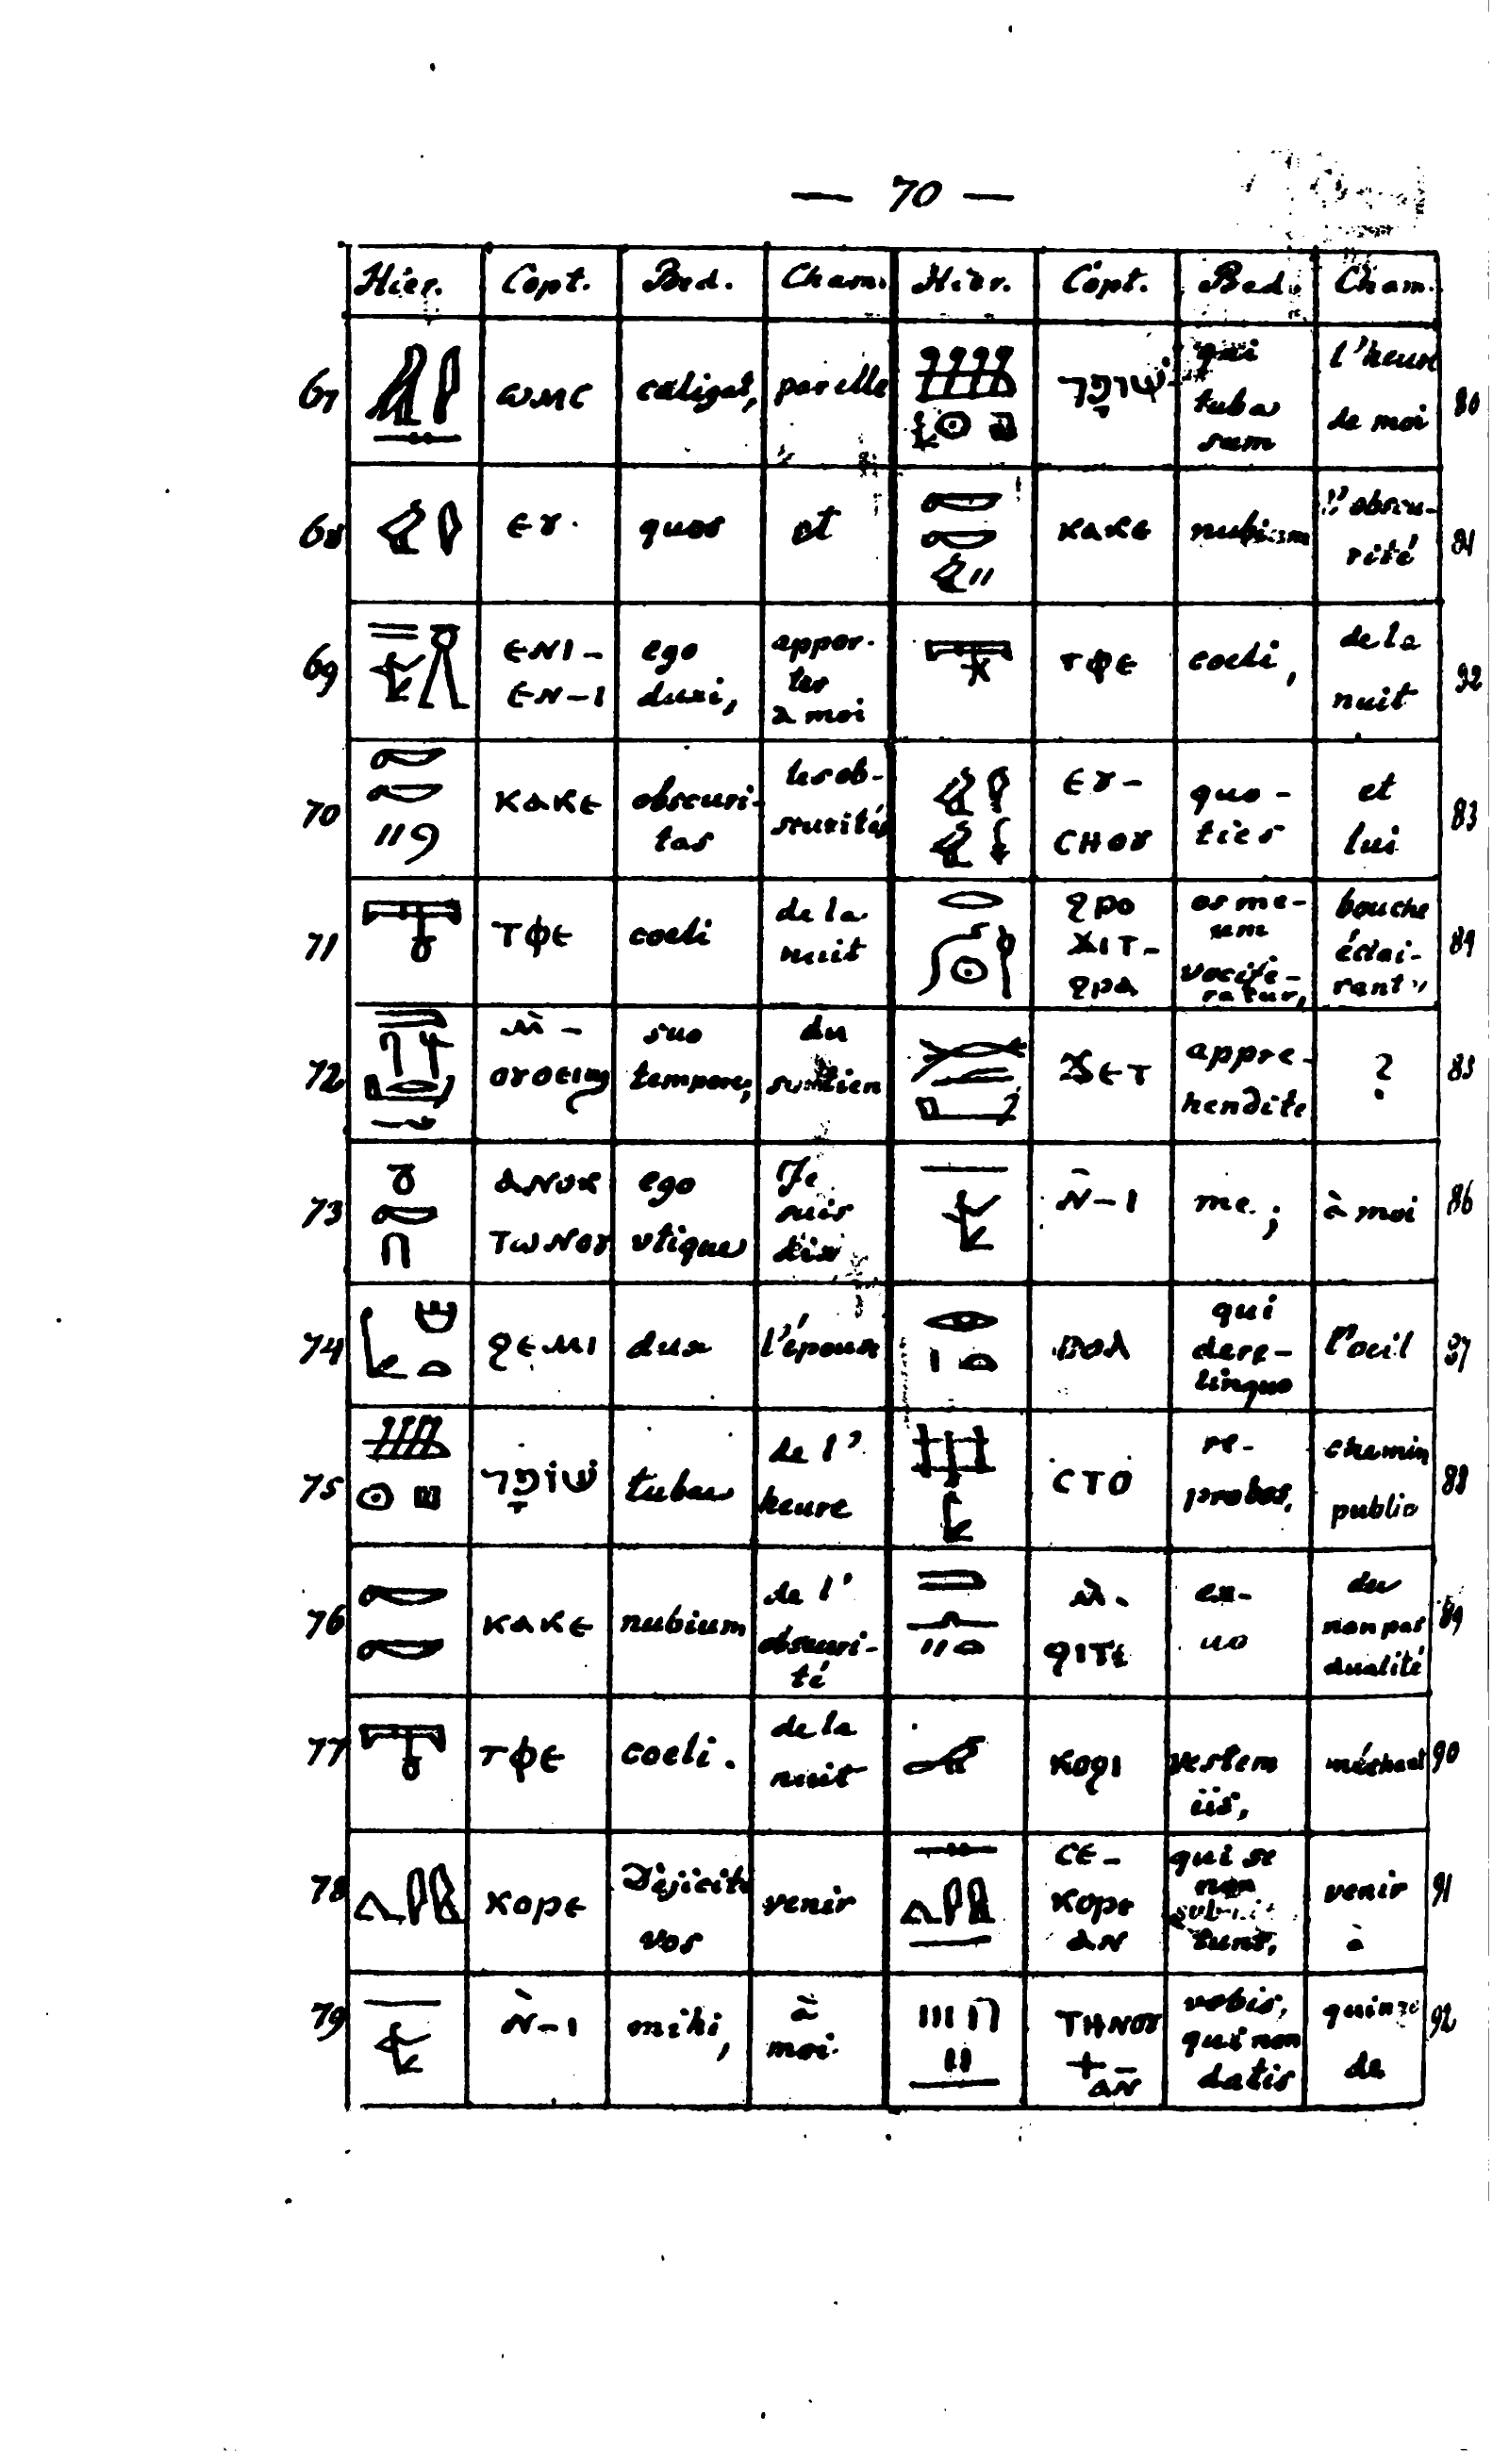 — 70 —
Hier. Copt. Bed. Cham. Hier. Copt. Bed. Cham.
67 ⲱⲙⲥ caligat, par elle
שׁוֹפָר qui tuba sum l'heure de moi 80
68 ⲉⲩ. quos et
ⲕⲁⲕⲉ nubium l'obscu-rité 81
69 ⲉⲛⲓ-ⲉⲛ-ⲓ ego duxi, appor-ter à moi
ⲧⲫⲉ coeli, de la nuit 82
70 ⲕⲁⲕⲉ obscuri-tas les ob-scurités
ⲉⲩ-ⲥⲏⲟⲩ quo-ties et lui 83
71 ⲧⲫⲉ coeli de la nuit
ϩⲣⲟ ϫⲓⲧ-ϩⲣⲁ os me-um vocife-ratur, bouche éclai-rant 84
72 ⲛ̀-ⲟⲩⲟⲉⲓϣ suo tempore; du soutien
ϫⲉⲧ appre-hendite ? 85
73 ⲁⲛⲟⲕ ⲧⲱⲛⲟⲩ ego utique Je suis dix
ⲛ̄-ⲓ me; à moi 86
74 ϩⲉⲙⲓ dux l'épouse
ⲃⲟⲗ qui dere-linquo l'oeil 87
75 שׁוֹפָר tubae de l'heure
ⲥⲧⲟ re-probos, chemin public 88
76 ⲕⲁⲕⲉ nubium de l'obscuri-té
ⲛ̀-ϥⲓⲧⲉ ex-uo du non pas dualité 89
77 ⲧⲫⲉ coeli. de la nuit
ⲕⲟϥⲓ vestem iis, méchant 90
78 ⲕⲟⲣⲉ Dejicite vos venir
ⲥⲉ-ⲕⲟⲣⲉ ⲁⲛ qui se non tunt, venir à 91
79 ⲛ̀-ⲓ mihi, à moi.
ⲧⲏⲛⲟⲩ ϯ ⲁⲛ vobis, qui non datis quinze de 92